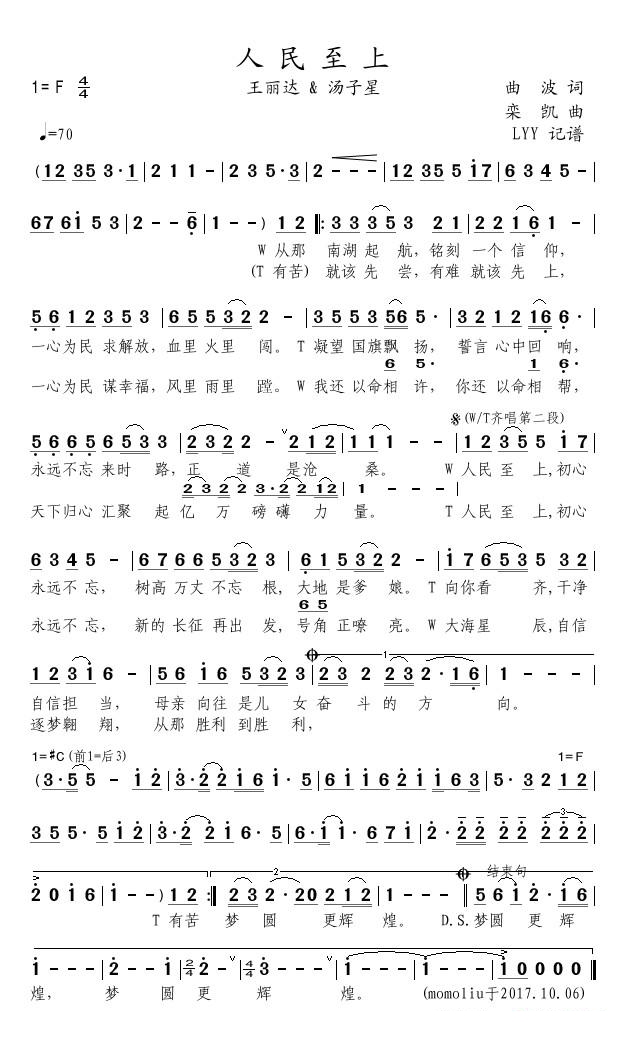 人民至上
1=F 4/4
王丽达 & 汤子星
曲 波 词
栾 凯 曲
LYY 记谱
♩=70
(12 35 3·1|2 1 1 -|2 3 5·3|2 - - -|12 35 5 17|6 3 4 5 -|
67 61 5 3|2 - - 6|1 - -) 12‖:33 35 3 21|22 16 1 -|
W 从那 南湖 起 航, 铭刻 一个 信 仰,
(T 有苦) 就该 先 尝, 有难 就该 先 上,
56 12 35 3|65 532 2 -|35 53 56 5·|32 12 16 6·|
一心为民 求解放, 血里 火里 闯。 T 凝望 国旗飘 扬, 誓言 心中回 响,
6 5· 1 6·
一心为民 谋幸福, 风里 雨里 蹚。 W 我还 以命相 许, 你还 以命相 帮,
𝄋(W/T齐唱第二段)
56 65 65 33|23 2 2 - ∨212|1 1 1 -|- 12 35 5 17|
永远不忘 来时 路, 正 道 是沧 桑。 W 人民 至 上,初心
23 22 3·2 212|1 - - -|
天下归心 汇聚 起亿 万 磅礴 力 量。 T 人民 至 上,初心
63 45 -|67 66 532 3|61 53 2 -|17 653 5 32|
永远不 忘, 树高 万丈 不忘 根, 大地 是爹 娘。 T 向你看 齐,干净
65
永远不 忘, 新的 长征 再出 发, 号角 正嘹 亮。 W 大海星 辰,自信
1 231 6 -|56 16 532 3|23 2 23 2·16|1 - - -|
自信担 当, 母亲 向往 是儿 女奋 斗的 方 向。
逐梦翱 翔, 从那 胜利 到胜 利,
1=#C (前1=后3)
1=F
(3·5 5 - 12|3·2 21 61 5·|61 16 21 163|5·3 2 12|
35 5·5 12|3·2 21 6·5|6·1 1·6 71|2·22 22 222|
结束句
2 0 1 6|1 - -) 12:‖232·20 212|1 - - -‖561 2·16|
T 有苦 梦 圆 更辉 煌。 D.S.梦圆 更 辉
1 - - -|2 - - 1|2/4 2 - ∨|4/4 3 - - - ∨|1 - - -|1 - - -|1 0 0 0 0‖
煌, 梦 圆 更 辉 煌。 (momoliu于2017.10.06)